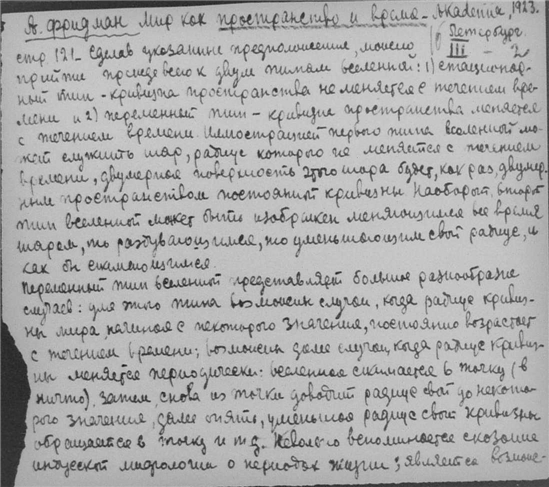 А. Фридман Мир как пространство и время – Akademia, 1923.
Петербург.
стр. 121 – Сделав указанные предположения, можно
III – 2
прийти прежде всего к двум типам вселенной: 1) стационар-
ный тип – кривизна пространства не меняется с течением вре-
мени и 2) переменный тип – кривизна пространства меняется
с течением времени. Иллюстрацией первого типа вселенной мо-
жет служить шар, радиус которого не меняется с течением
времени, двумерная поверхность этого шара будет, как раз, двумер-
ным пространством постоянной кривизны. Наоборот, второй
тип вселенной может быть изображен меняющимся все время
шаром, то раздувающимся, то уменьшающим свой радиус, и
как бы сжимающимся.
Переменный тип вселенной представляет большое разнообразие
случаев: для этого типа возможны случаи, когда радиус кривиз-
ны мира, начиная с некоторого значения, постоянно возрастает
с течением времени; возможны далее случаи, когда радиус кривиз-
ны меняется периодически: вселенная сжимается в точку (в
ничто), затем снова из точки доводит радиус свой до некото-
рого значения, далее опять, уменьшая радиус своей кривизны
обращается в точку и т.д. Невольно вспоминается сказание
индусской мифологии о периодах жизни; является возмож-